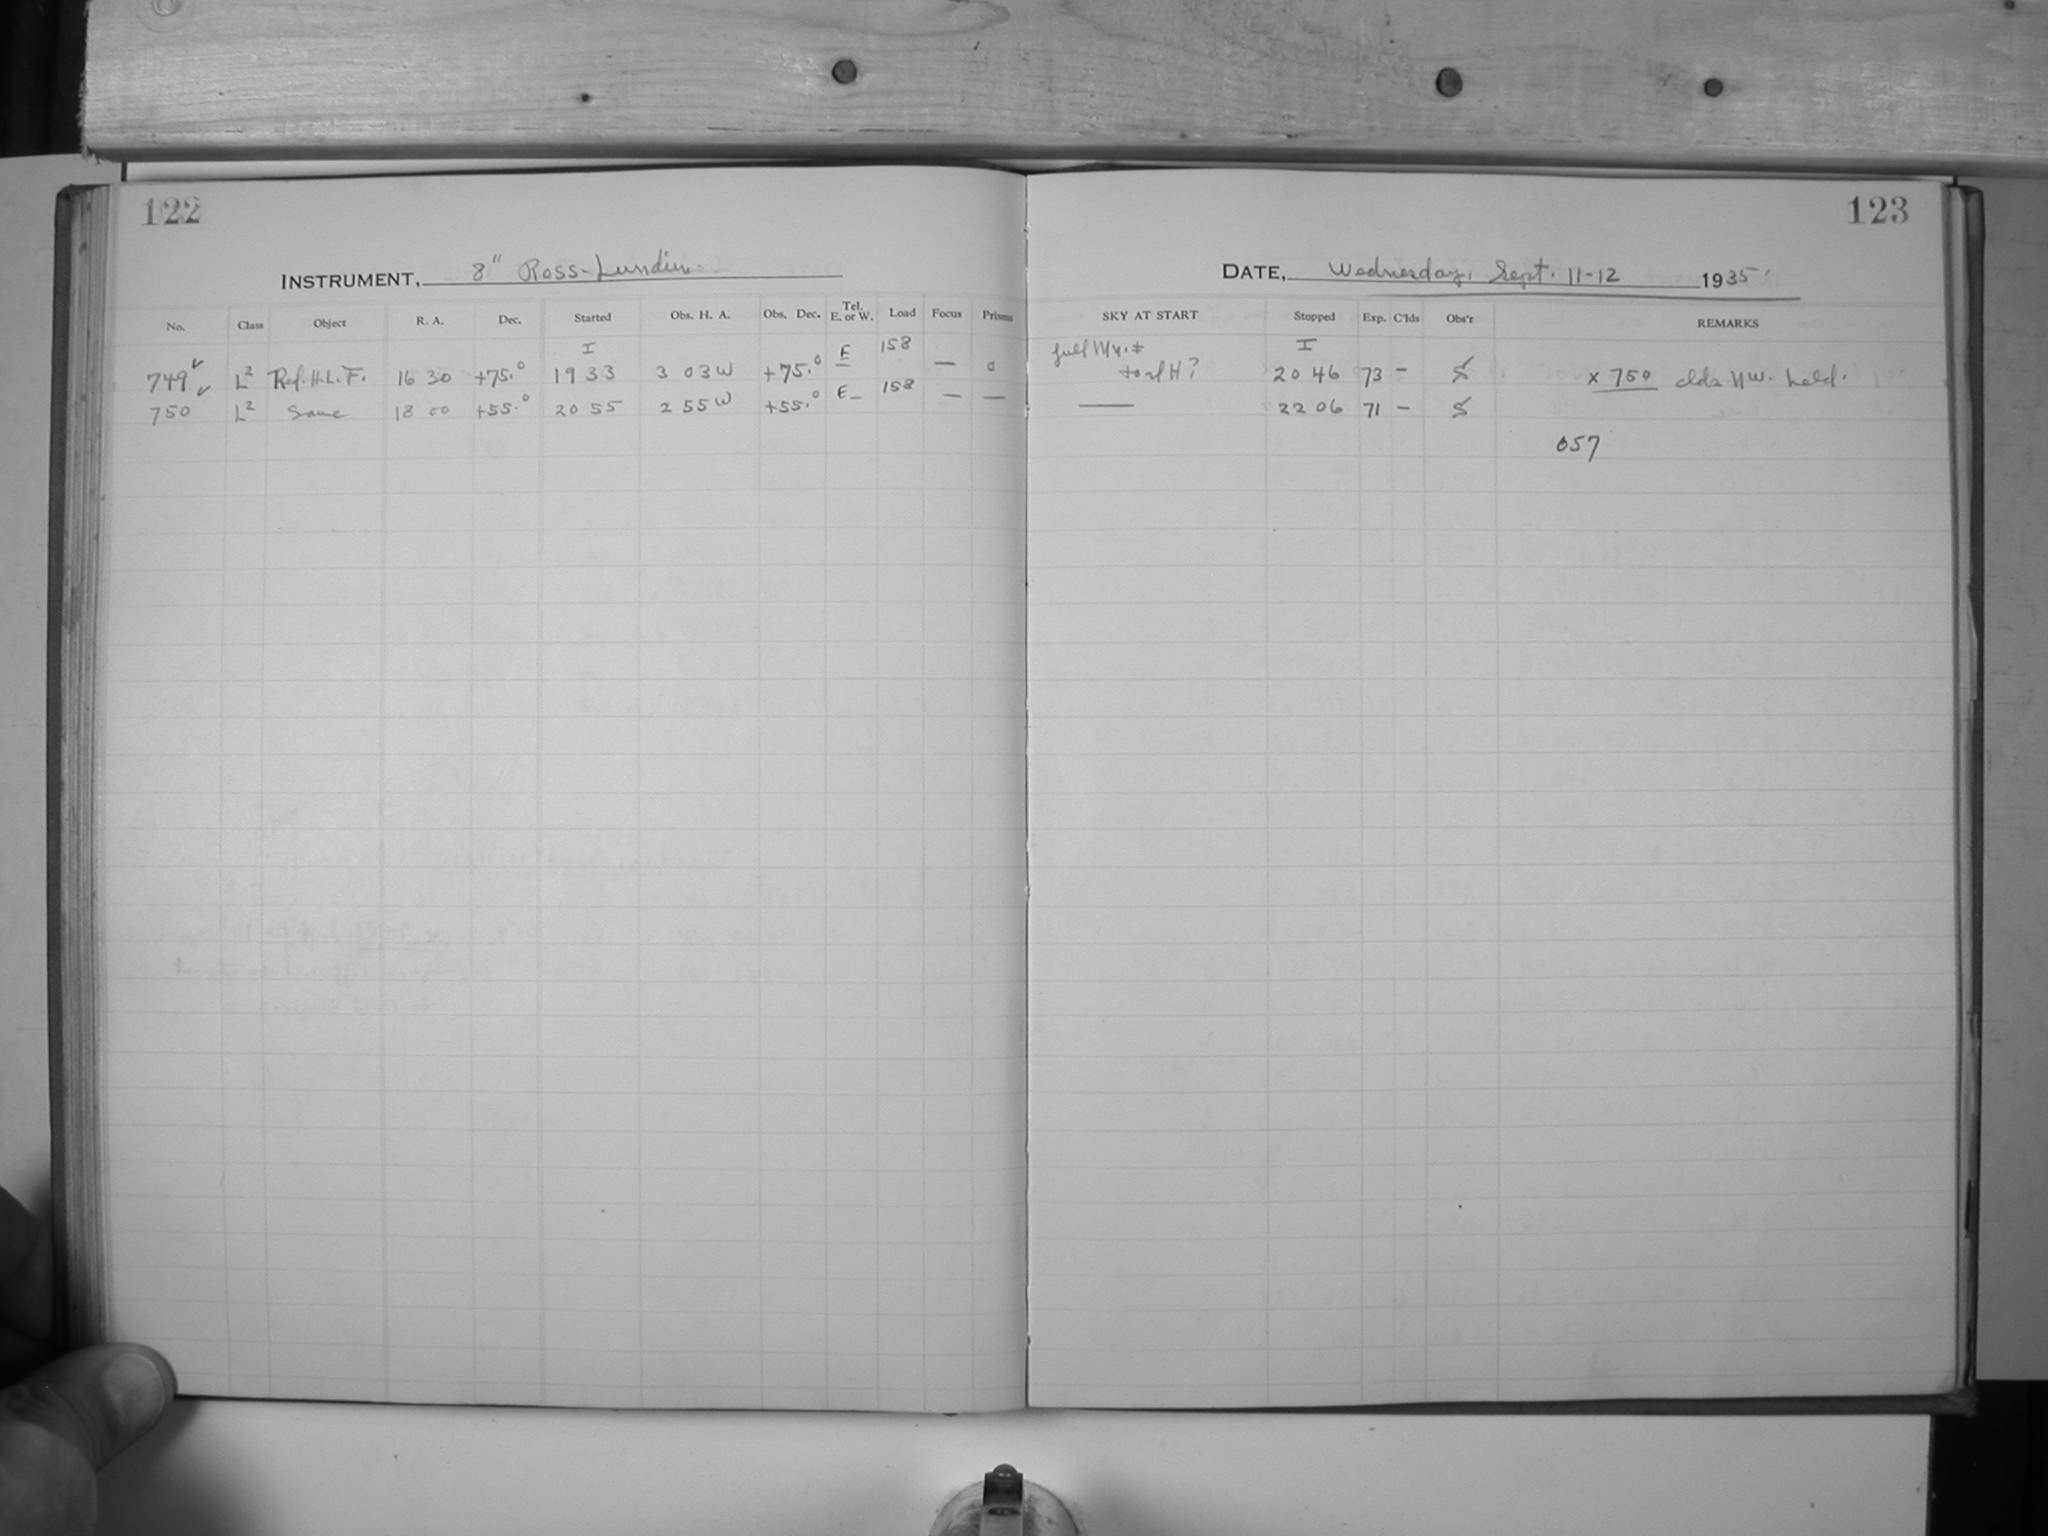 122
123
INSTRUMENT, 8" Ross-Lundin
DATE, Wednesday, Sept. 11-12 1935
No. Class Object R. A. Dec. Started Obs. H. A. Obs. Dec. Tel. E. or W. Load Focus Prisms SKY AT START Stopped Exp. C'lds Obs'r REMARKS
I I
749 ✓ L² Ref. H.L.F. 16 30 +75.° 19 33 3 03 W +75.° E 158 — 0 full 20 46 73 - S x 750 clds NW. held.
750 ✓ L² Same 18 00 +55.° 20 55 2 55 W +55.° E- 158 — — —— 22 06 71 - S
057